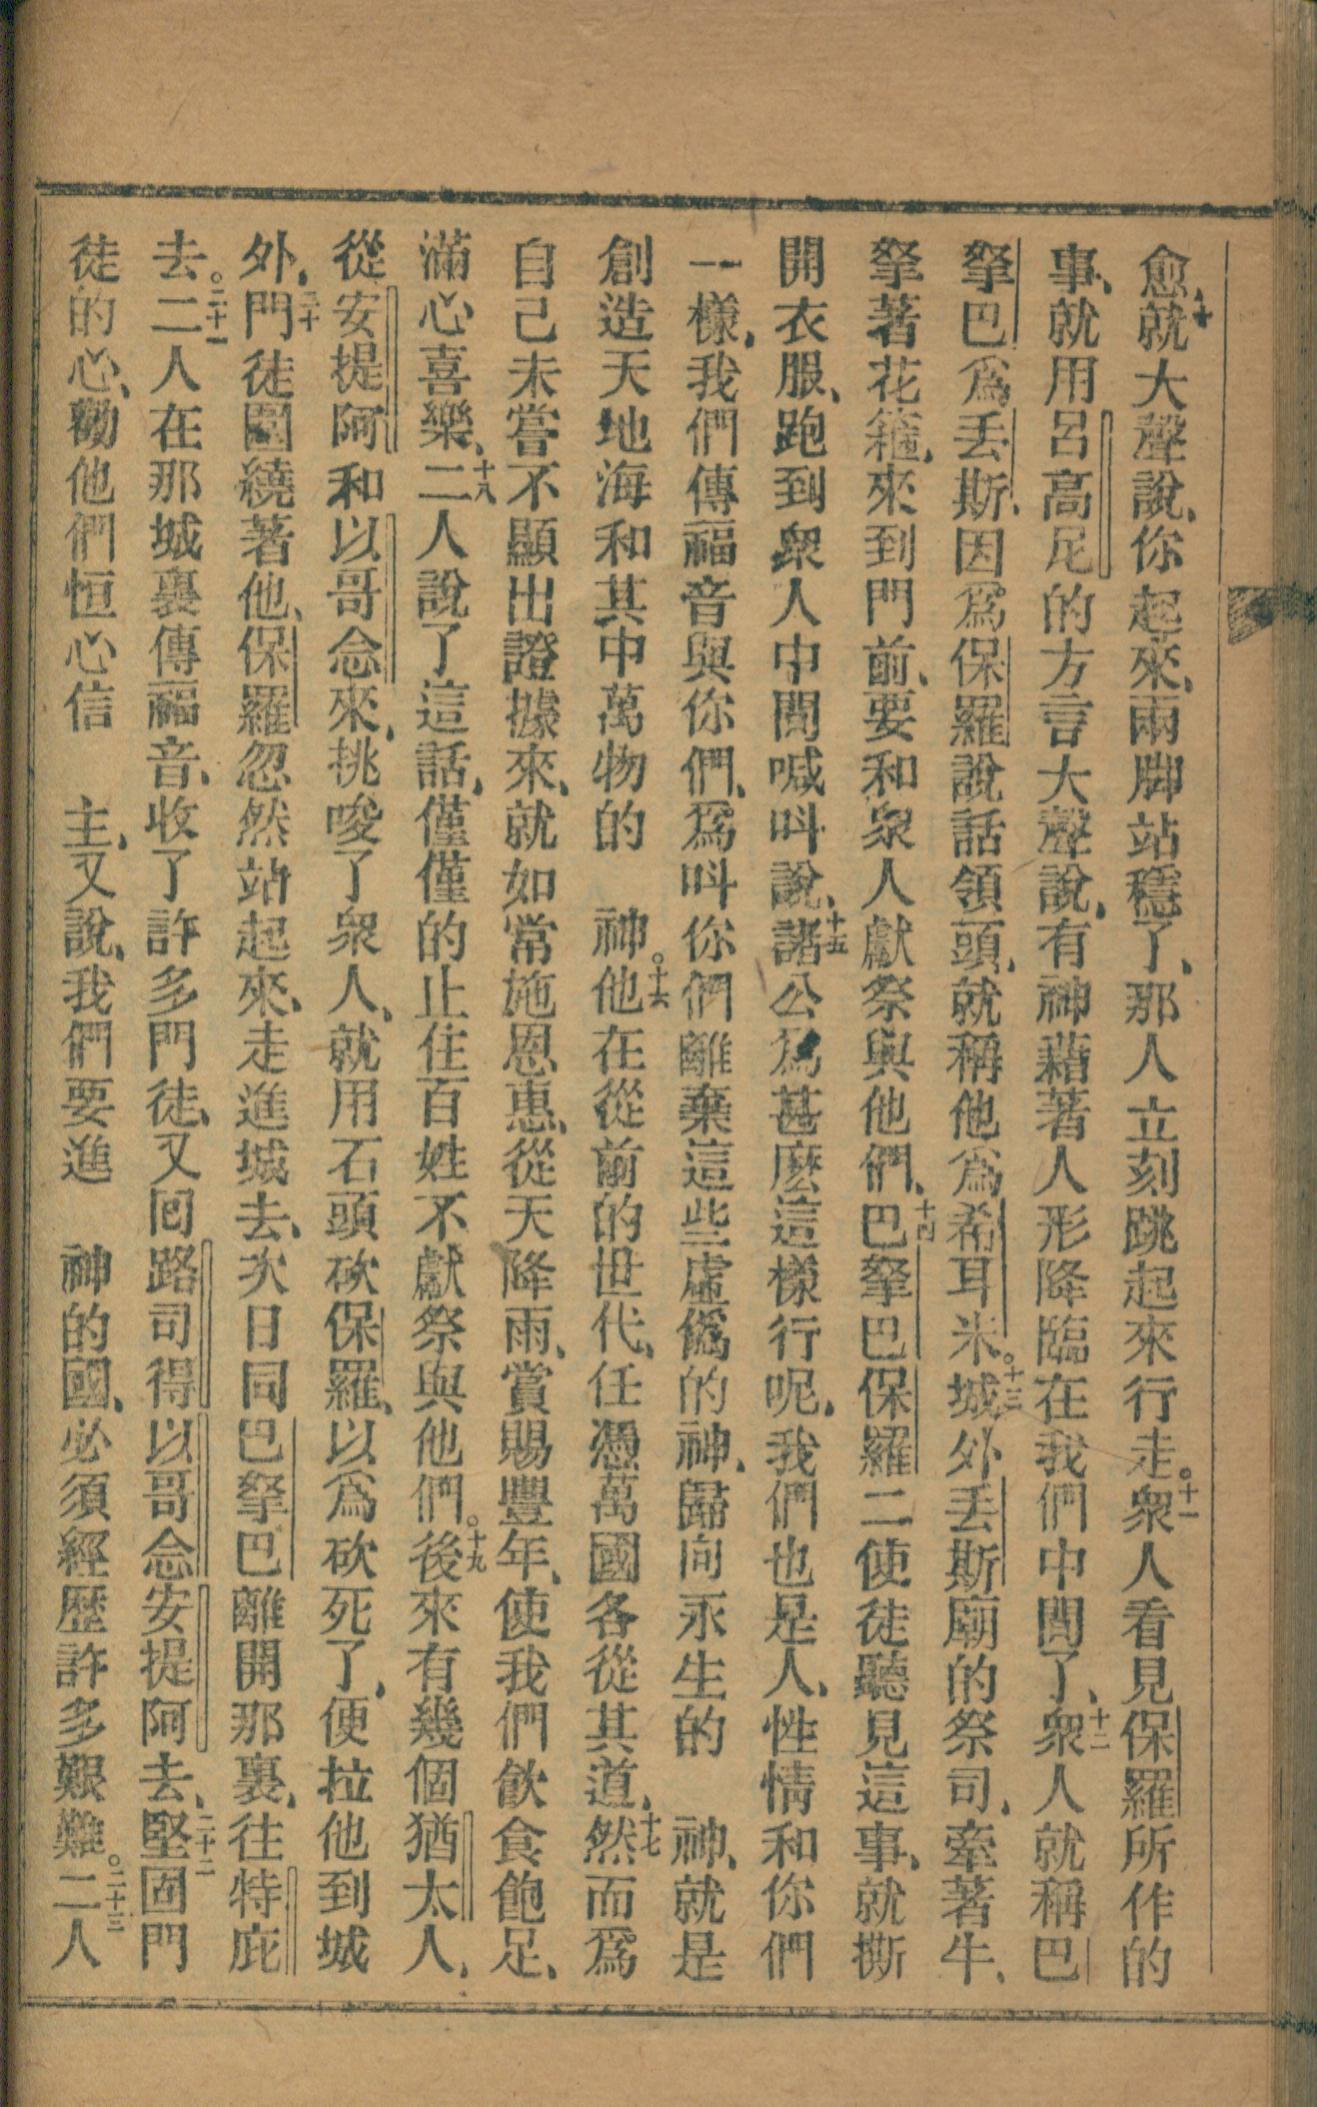 愈、十就大聲說、你起來、兩脚站穩了、那人立刻跳起來行走。十一衆人看見保羅所作的
事、就用呂高尼的方言大聲說、有神藉著人形降臨在我們中間了、十二衆人就稱巴
拏巴爲丢斯、因爲保羅說話領頭、就稱他爲希耳米。十三城外丢斯廟的祭司、牽著牛、
拏著花箍、來到門前、要和衆人獻祭與他們、十四巴拏巴保羅二使徒聽見這事、就撕
開衣服、跑到衆人中間喊呌說、十五諸公爲甚麽這樣行呢、我們也是人、性情和你們
一樣、我們傳福音與你們、爲呌你們離棄這些虛僞的神、歸向永生的　神、就是
創造天地海和其中萬物的　神。十六他在從前的世代、任憑萬國各從其道、十七然而爲
自己未嘗不顯出證據來、就如常施恩惠、從天降雨、賞賜豐年、使我們飮食飽足、
滿心喜樂、十八二人說了這話、僅僅的止住百姓不獻祭與他們。十九後來有幾個猶太人、
從安提阿和以哥念來、挑唆了衆人、就用石頭砍保羅、以爲砍死了、便拉他到城
外、二十門徒圍繞著他、保羅忽然站起來、走進城去、次日同巴拏巴離開那裏、往特庇
去。二十一二人在那城裏傳福音、收了許多門徒、又回路司得以哥念安提阿去、二十二堅固門
徒的心、勸他們恒心信　主、又說、我們要進　神的國、必須經歷許多艱難。二十三二人